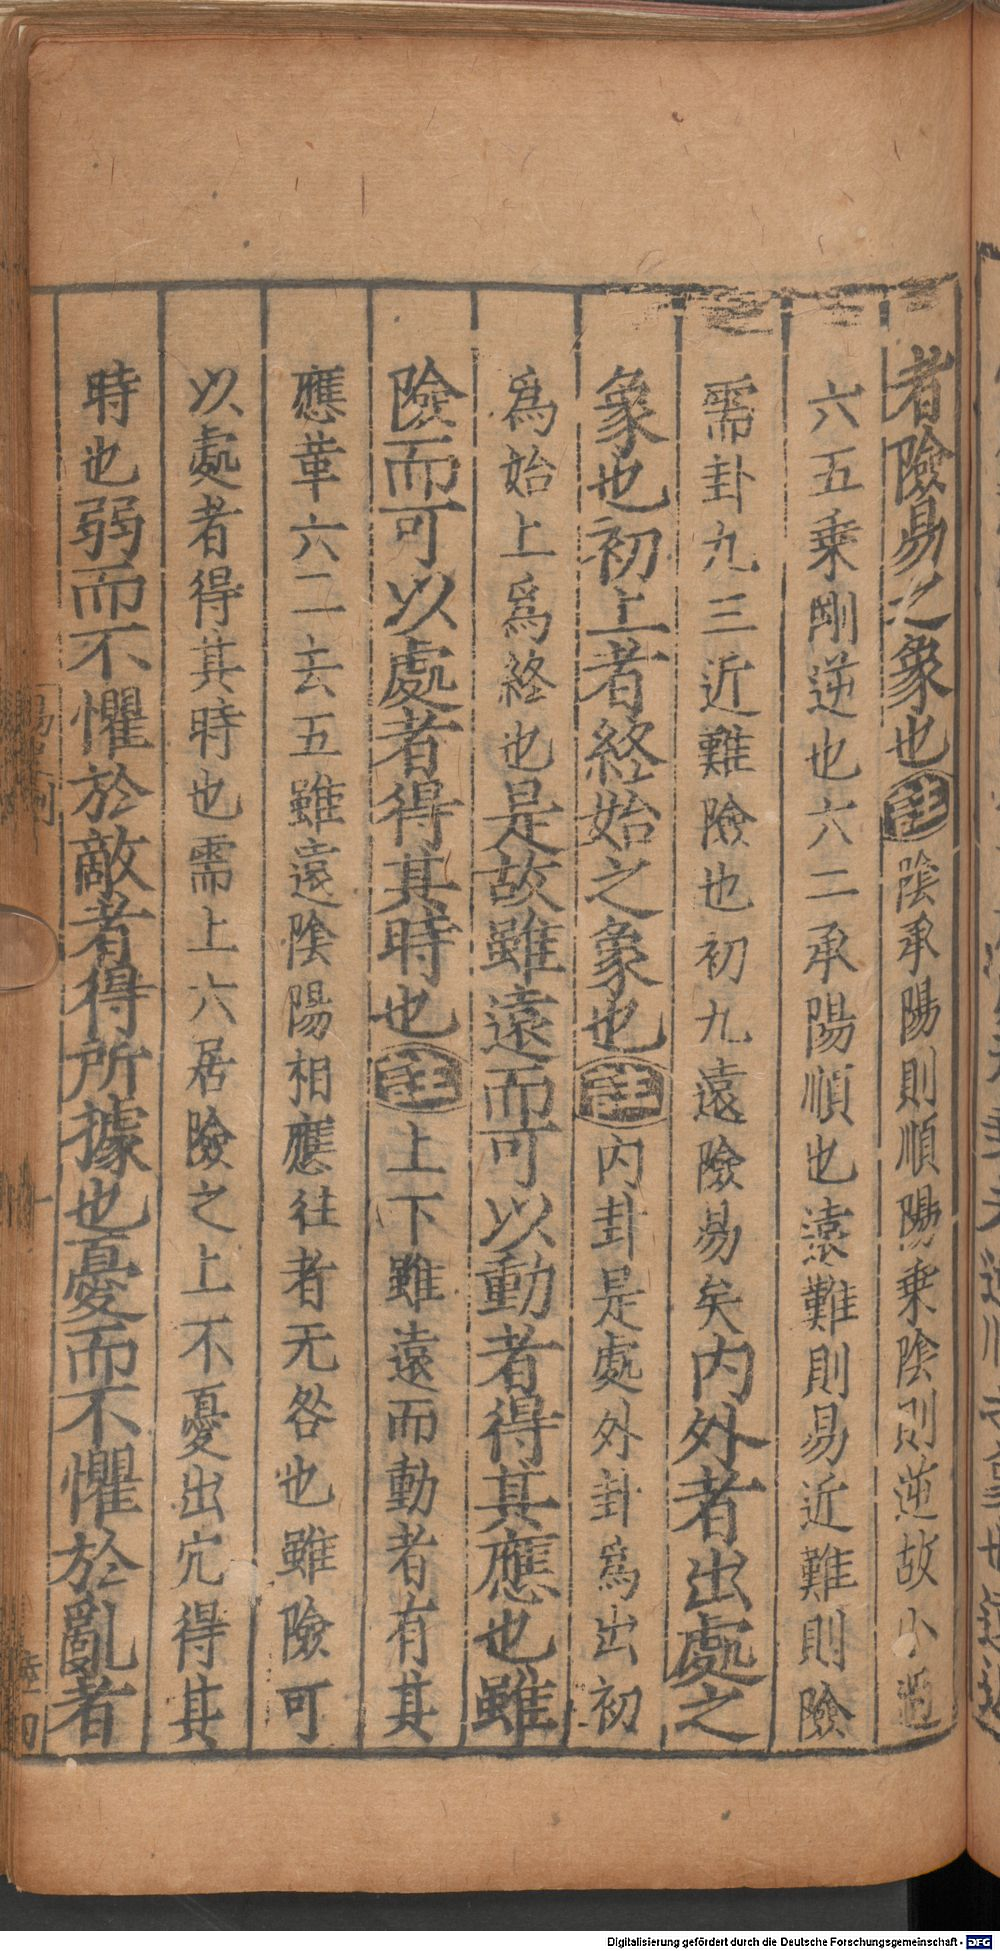 者險易之象也註陰承陽則順陽乗陰則逆故小過
六五乗剛逆也六二承陽順也遠難則易近難則險
需卦九三近難險也初九遠險易矣内外者出處之
象也初上者終始之象也註内卦是處外卦爲出初
爲始上爲終也是故雖遠而可以動者得其應也雖
險而可以處者得其時也註上下雖遠而動者有其
應革六二去五雖遠陰陽相應往者无咎也雖險可
以處者得其時也需上六居險之上不憂出穴得其
時也弱而不懼於敵者得所據也憂而不懼於亂者
Digitalisierung gefördert durch die Deutsche Forschungsgemeinschaft - DFG